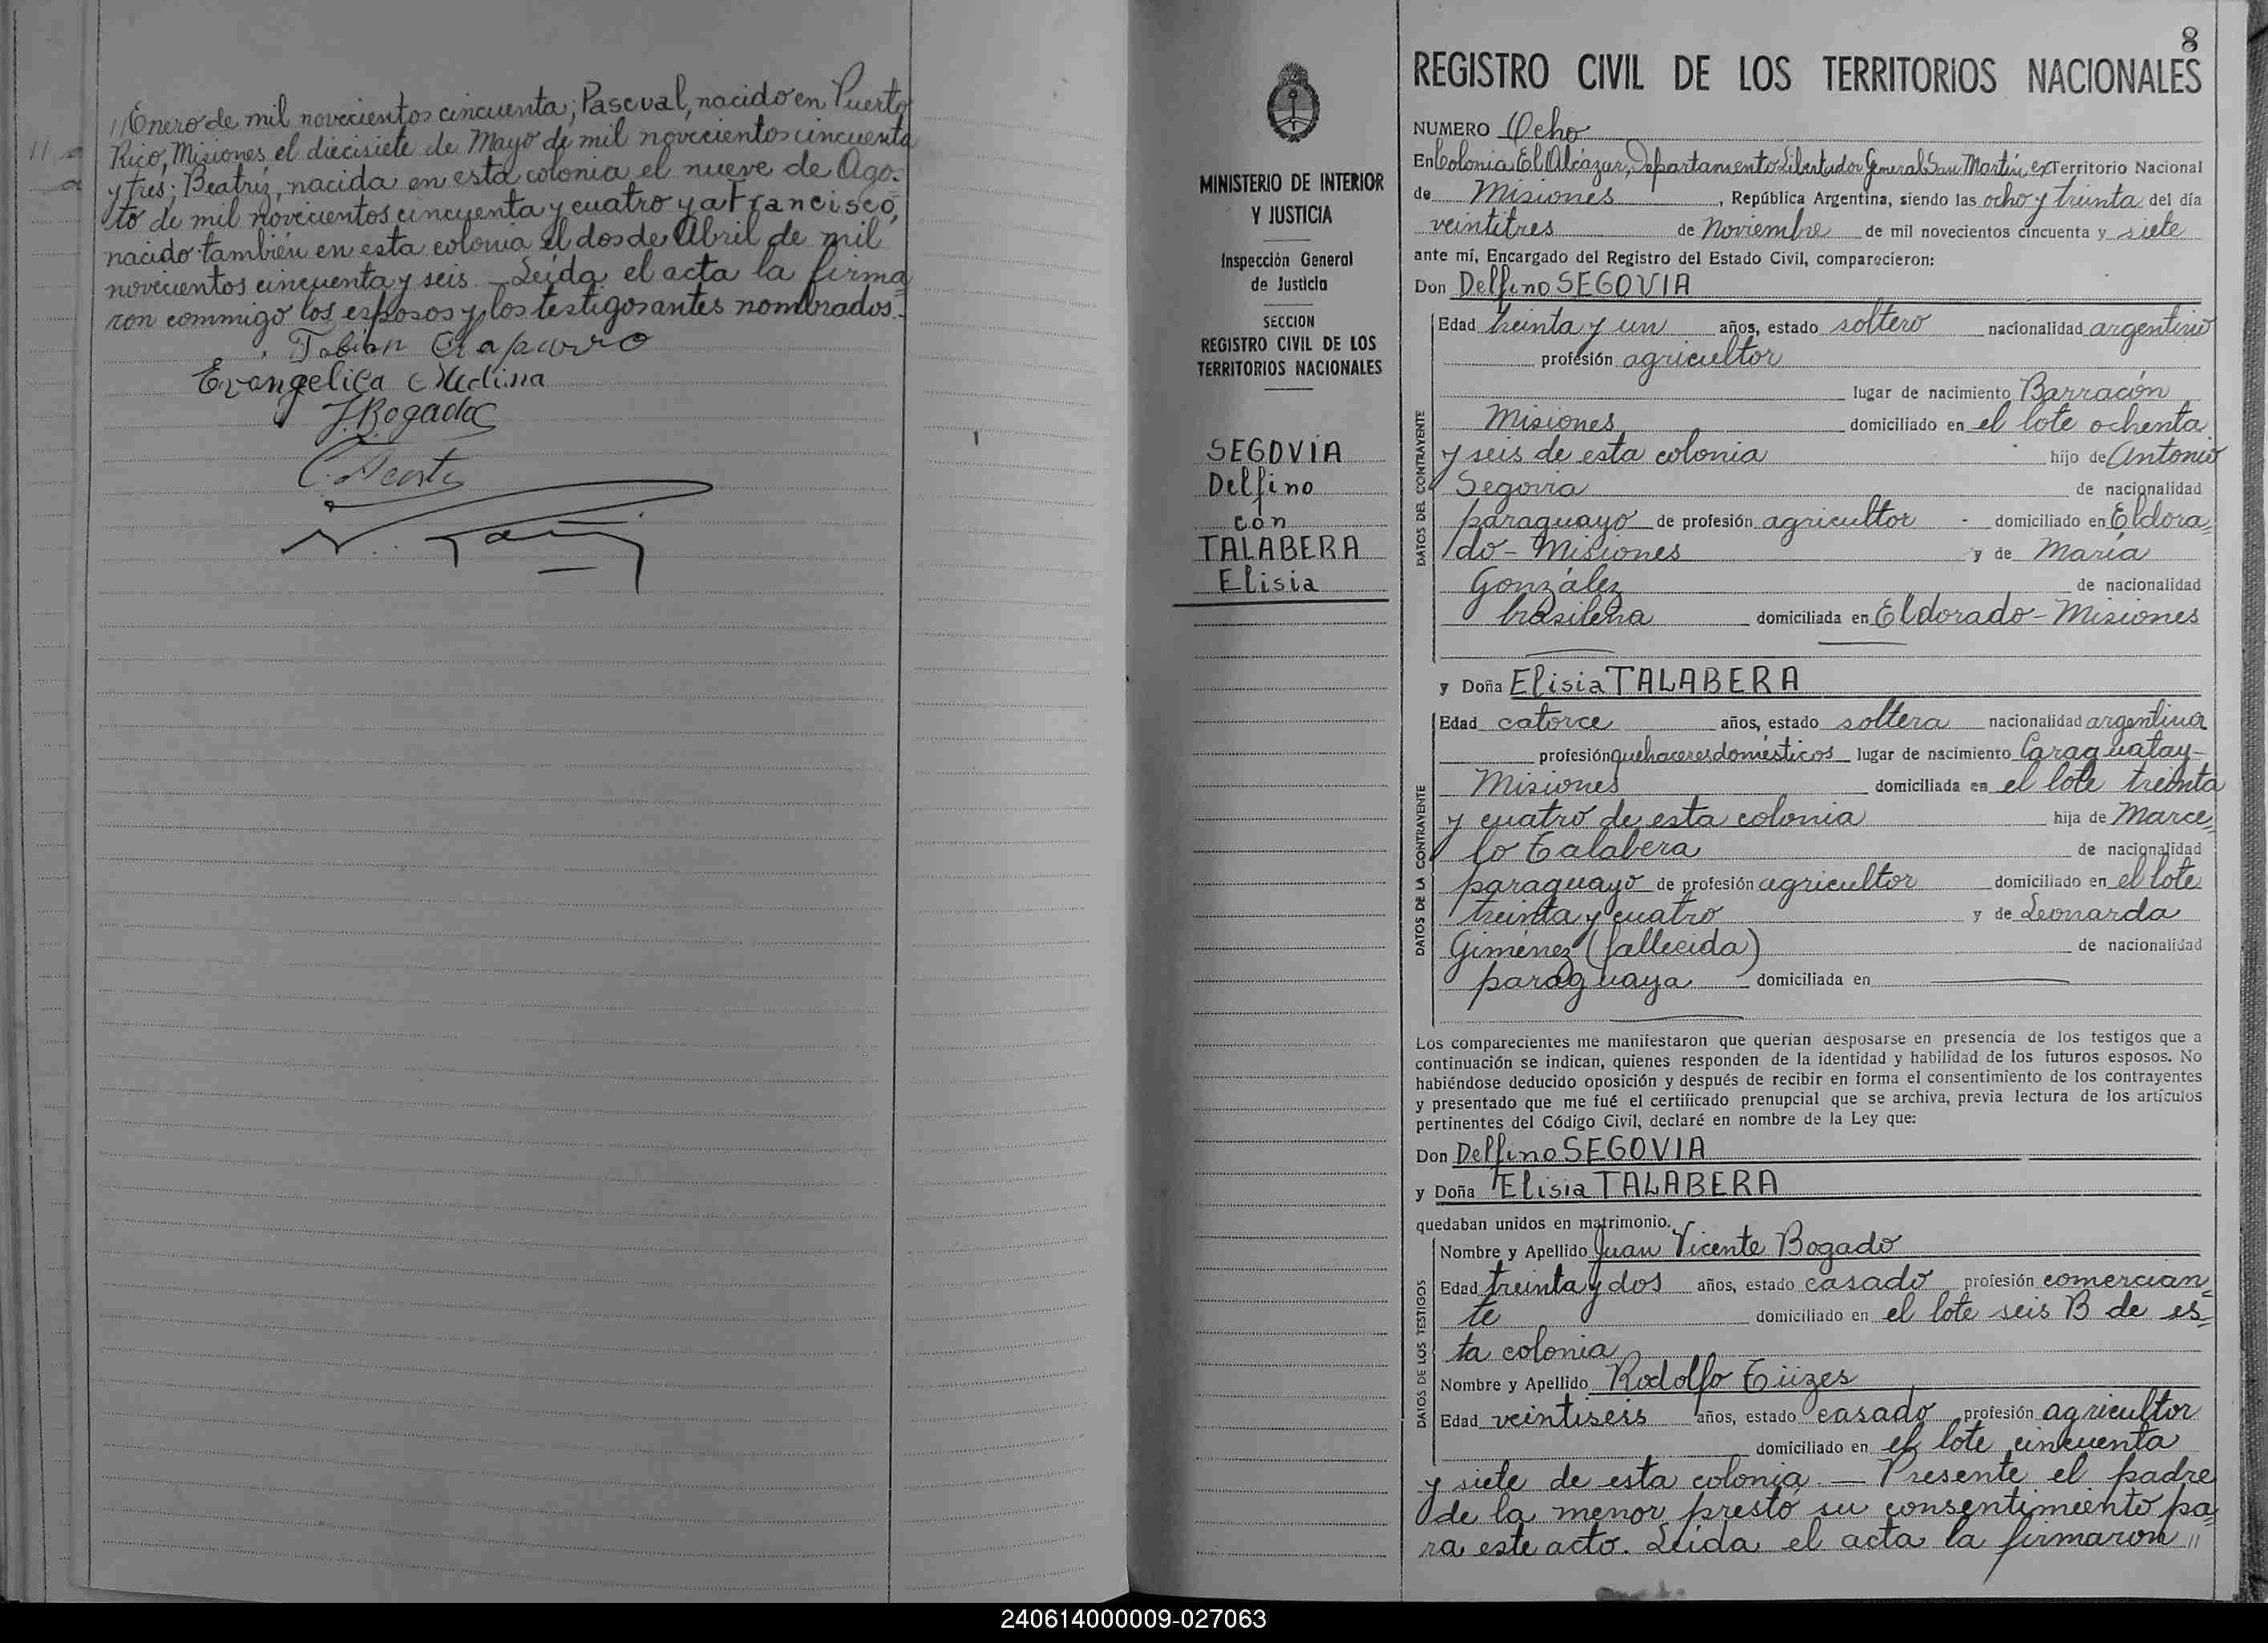 //Enero de mil novecientos cincuenta; Pascual, nacido en Puerto
Rico, Misiones el diecisiete de Mayo de mil novecientos cincuenta
y tres; Beatriz, nacida en esta colonia el nueve de Ago-
to de mil novecientos cincuenta y cuatro y a Francisco,
nacido también en esta colonia el dos de Abril de mil
novecientos cincuenta y seis. - Leída el acta la firma=
ron commigo los esposos y los testigos antes nombrados.-
Evangelica Medina
J. Bogado
8
REGISTRO CIVIL DE LOS TERRITORIOS NACIONALES
NUMERO Ocho
En Colonia El Alcázar, Departamento Libertador General San Martín, en Territorio Nacional
de Misiones, República Argentina, siendo las ocho y treinta del día
veintitres de Noviembre de mil novecientos cincuenta y siete
ante mí, Encargado del Registro del Estado Civil, comparecieron:
Don Delfino SEGOVIA
MINISTERIO DE INTERIOR
Y JUSTICIA
Inspección General
de Justicia
SECCION
REGISTRO CIVIL DE LOS
TERRITORIOS NACIONALES
SEGOVIA
Delfino
con
TALABERA
Elisia
DATOS DEL CONTRAYENTE
Edad treinta y un años, estado soltero nacionalidad argentino
profesión agricultor
lugar de nacimiento Barracón
Misiones domiciliado en el lote ochenta
y seis de esta colonia hijo de Antonio
Segovia de nacionalidad
paraguayo de profesión agricultor - domiciliado en Eldora=
do - Misiones y de María
González de nacionalidad
brasileña domiciliada en Eldorado - Misiones
y Doña Elisia TALABERA
DATOS DE LA CONTRAYENTE
Edad catorce años, estado soltera nacionalidad argentina
profesión quehaceres domésticos lugar de nacimiento Caraguatay-
Misiones domiciliada en el lote treinta
y cuatro de esta colonia hija de Marce=
lo Talabera de nacionalidad
paraguayo de profesión agricultor domiciliado en el lote
treinta y cuatro y de Leonarda
Giménez (fallecida) de nacionalidad
paraguaya domiciliada en
Los comparecientes me manifestaron que querían desposarse en presencia de los testigos que a
continuación se indican, quienes responden de la identidad y habilidad de los futuros esposos. No
habiéndose deducido oposición y después de recibir en forma el consentimiento de los contrayentes
y presentado que me fué el certificado prenupcial que se archiva, previa lectura de los artículos
pertinentes del Código Civil, declaré en nombre de la Ley que:
Don Delfino SEGOVIA
y Doña Elisia TALABERA
quedaban unidos en matrimonio.
DATOS DE LOS TESTIGOS
Nombre y Apellido Juan Vicente Bogado
Edad treinta y dos años, estado casado profesión comercian=
te domiciliado en el lote seis B de es=
ta colonia
Nombre y Apellido Rodolfo Tüzes
Edad veintiseis años, estado casado profesión agricultor
domiciliado en el lote cincuenta
y siete de esta colonia. — Presente el padre
de la menor prestó su consentimiento pa=
ra este acto. Leída el acta la firmaron //
240614000009-027063